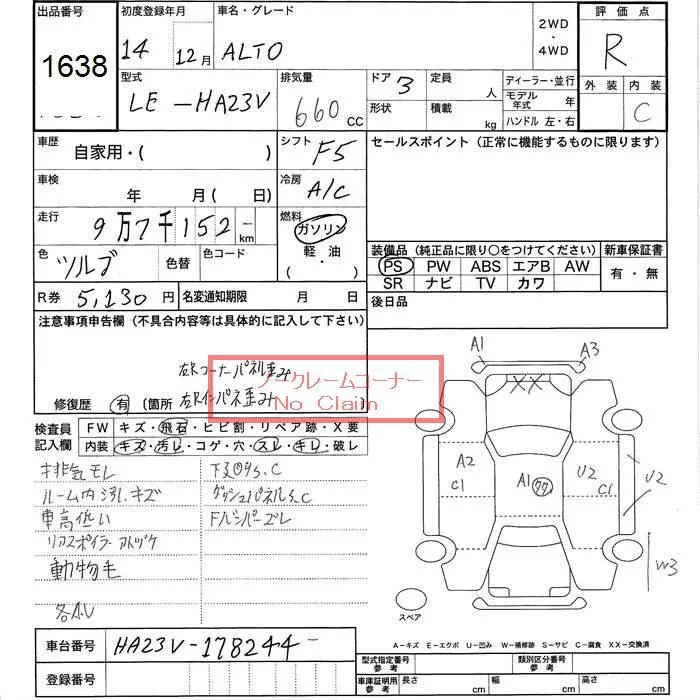 出品番号
1638
初度登録年月
14 12月
車名・グレード
ALTO
2WD
・
4WD
評価点
R
外装 内装
C
型式
LE-HA23V
排気量
660 CC
ドア 3
形状
定員 人
積載 kg
ディーラー・並行
モデル年式 年
ハンドル 左・右
車歴
自家用・( )
シフト F5
セールスポイント (正常に機能するものに限ります)
車検
年 月( 日)
冷房 A/C
走行
9万7千152- km
燃料
ガソリン
軽・油
( ・ )
色
ツルブ
色替
色コード
装備品(純正品に限り○をつけてください)
PS PW ABS エアB AW
SR ナビ TV カワ
新車保証書
有・無
R券 5,130円
名変通知期限 月 日
後日品
注意事項申告欄(不具合内容等は具体的に記入して下さい)
左Rコーナーパネル歪み
ノークレームコーナー
No Claim
修復歴 有 (箇所 左Rインパネ歪み )
検査員記入欄
FW キズ・飛石・ヒビ割・リペア跡・X要
内装 キズ・汚レ・コゲ・穴・スレ・キレ・破レ
排気モレ
ルーム内汚レキズ
車高低い
リアスポイラーアトヅケ
動物毛
各ムレ
下廻りS.C
ダッシュパネルS.C
Fバンパーズレ
A1 A3
XX
A2
C1
A1
U2
C1
U2
W3
スペア
A-キズ E-エクボ U-凹み W-補修跡 S-サビ C-腐食 XX-交換済
車台番号 HA23V-178244-
登録番号
型式指定番号 参考
類別区分番号 参考
車庫証明用 参考
長さ cm
幅 cm
高さ cm